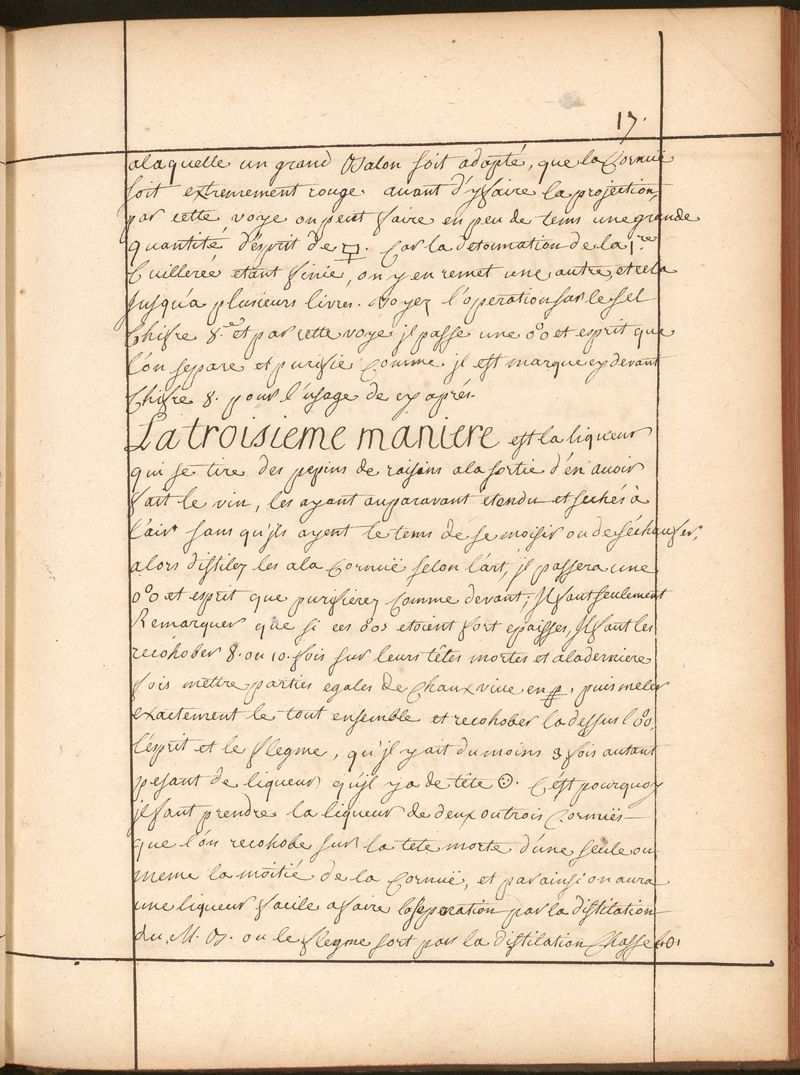 17.
alaquelle un grand Balon soit adapté, que la Cornuë
soit extremement rouge avant d'y faire la projection,
par cette voye on peut faire en peu de tems une grande
quantité d'ésprit de 🜿. Car la detonnation de la 1.re
Cuillereé etant finie, on y en remet une autre, et cela
Jusqu'a plusieurs livres. voyez l'operation sur le sel
Chifre 8. et par cette voye jl passe une o°o et esprit que
l'on separe et purifie Comme jl est marque cy devant
Chifre 8. pour l'usage de cy aprés.
La troisieme maniere est la liqueur
qui se tire des pepins de raisins ala sortie d'en avoir
fait le vin, les ayant auparavant étendu et sechés à
l'air sans qu'jls ayent le tems de se moisir ou de séchaufer,
alors distilez les ala Cornuë selon l'art, jl passera une
o°o et esprit que purifierez Comme devant; Jl faut seulement
Remarquer que si ces o°o etoient fort epaisses, Jl faut les
recohober 8. ou 10. fois sur leurs têtes mortes et ala derniere
fois mettre parties egales de Chaux vive en, puis meler
exactement le tout ensemble et recohober la dessus l'o°o,
l'ésprit et le flegme, qu'jl y ait du moins 3 fois autant
pesant de liqueur qu'jl y a de tête ☉. C'est pourquoy
jl faut prendre la liqueur de deux ou trois Cornuës
que l'on recohobe sur la tete morte d'une seule ou
meme la moitié de la Cornuë, et par ainsi on aura
une liqueur facile afaire la separation par la distilation
du M. B. ou le flegme sort par la distilation Chassé